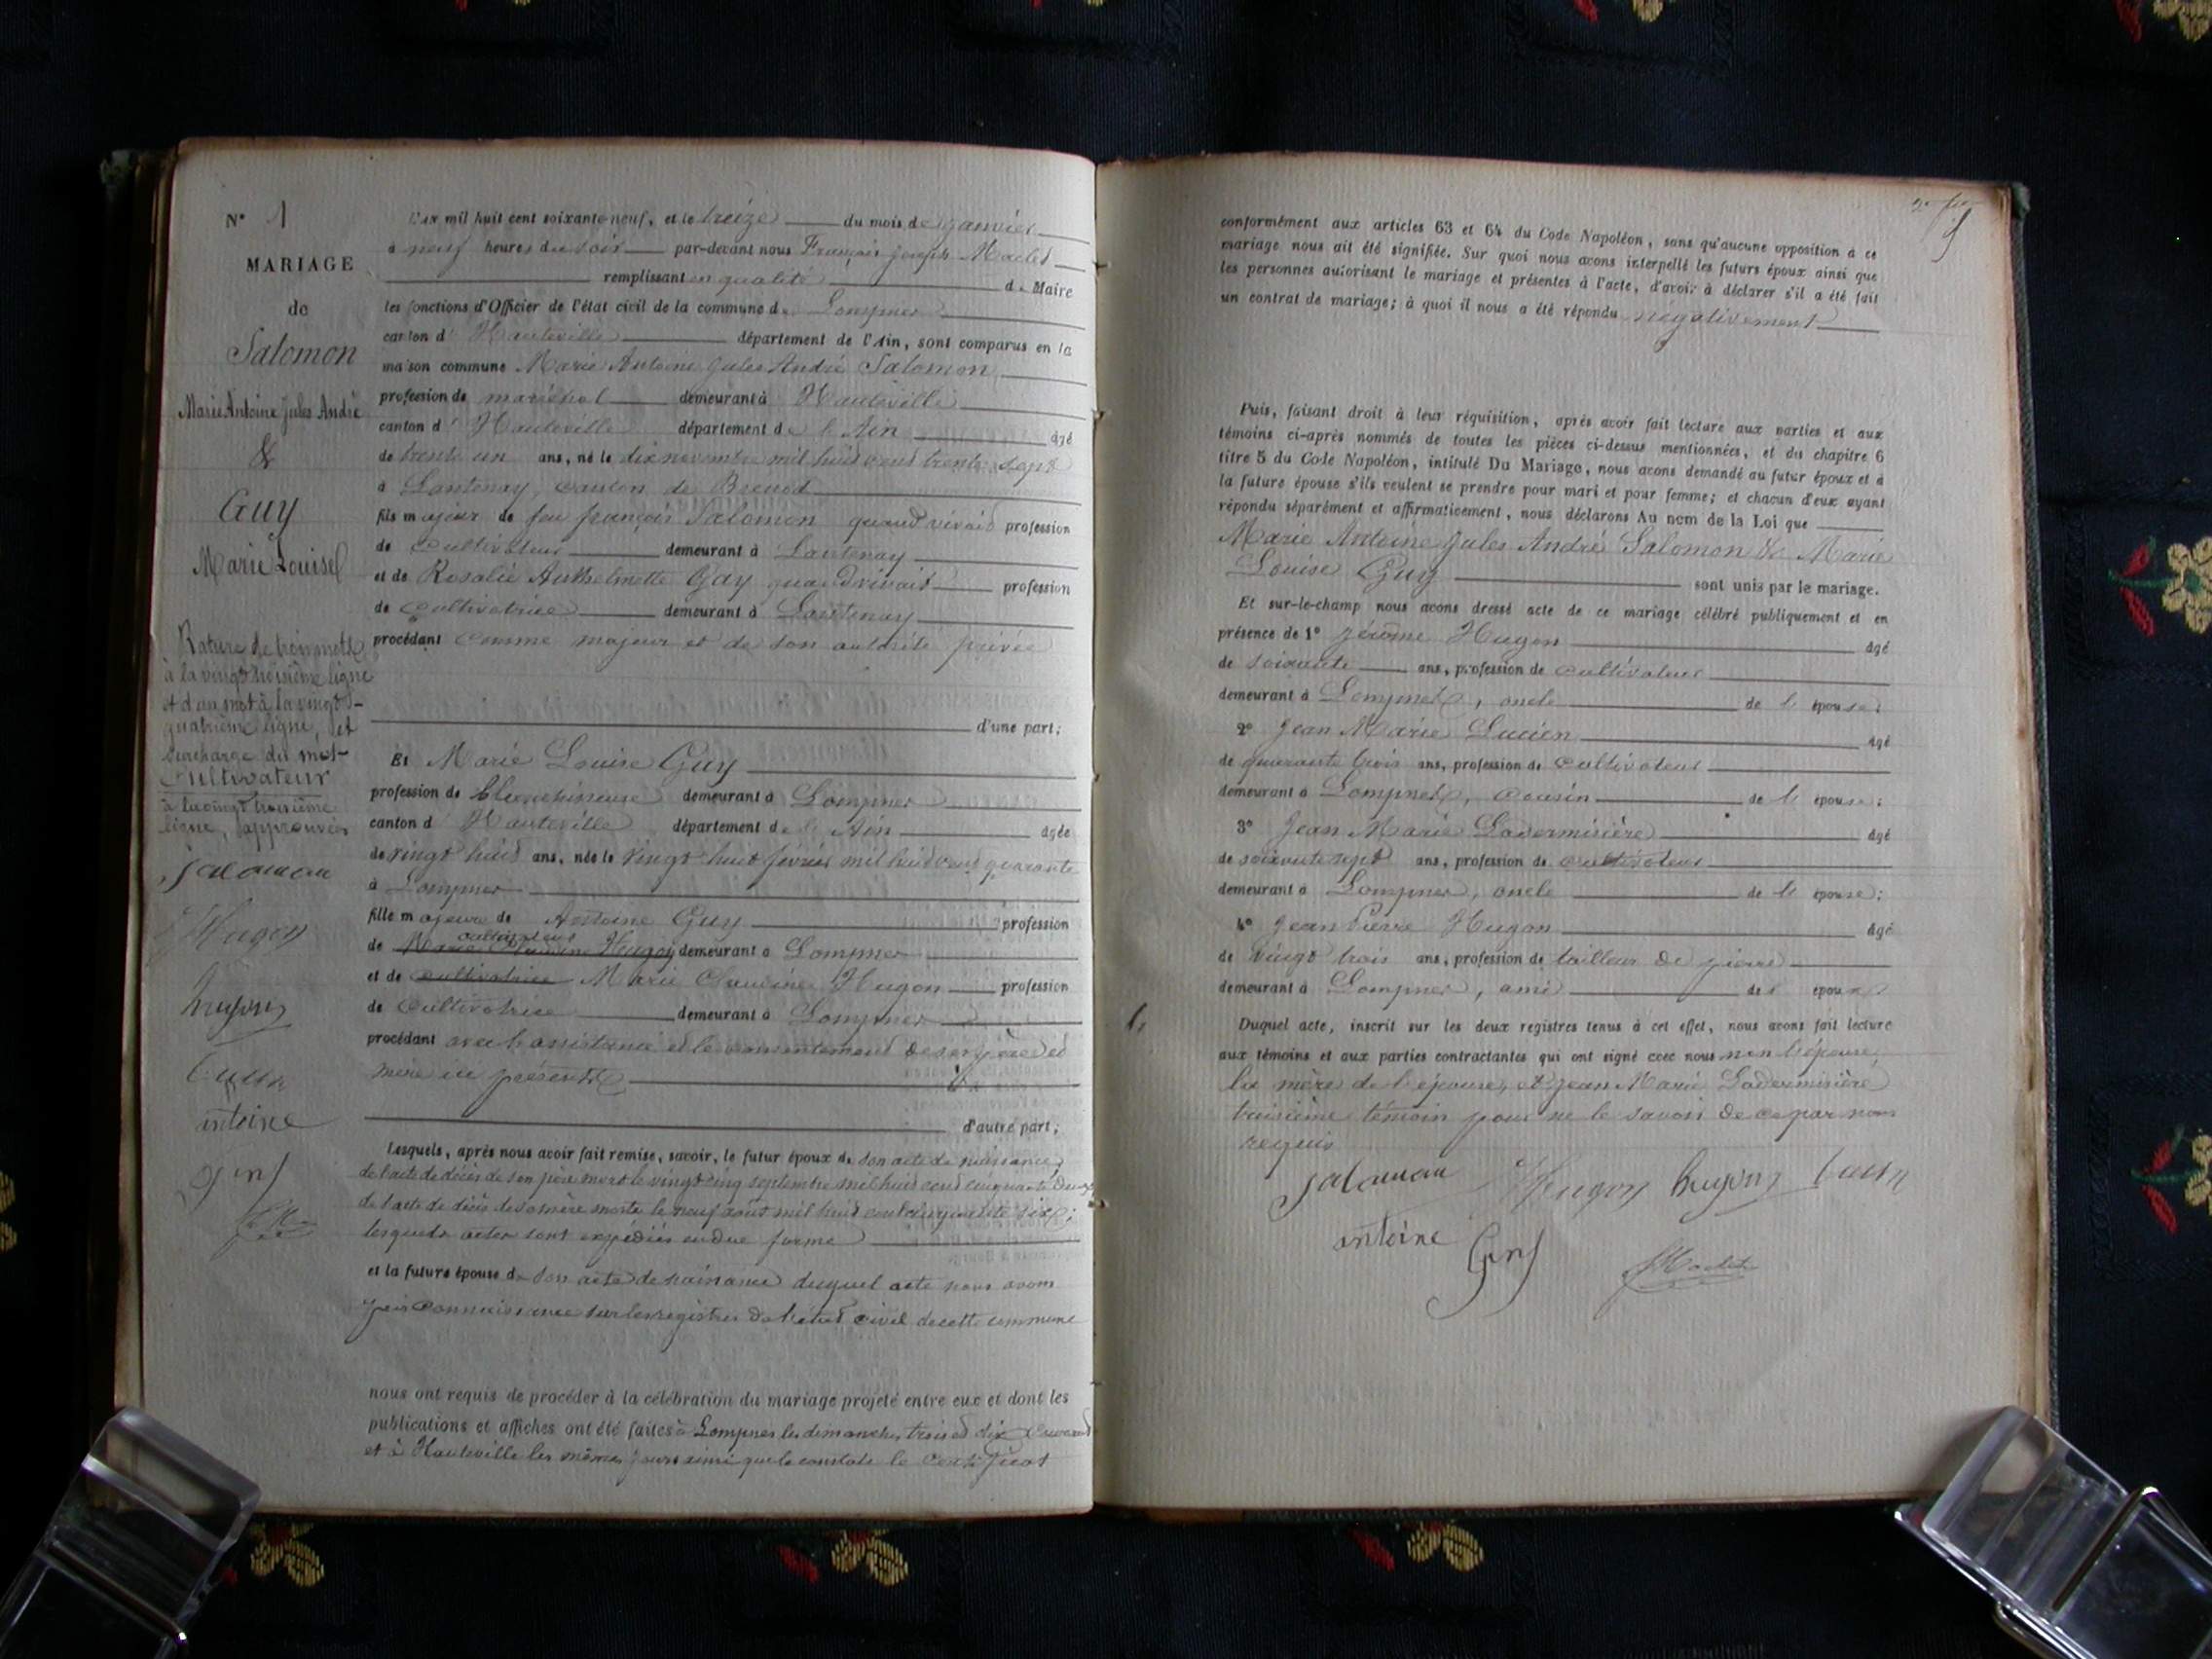 N° 1
MARIAGE
de
Salomon
Marie Antoine Jules André
&
Guy
Marie Louise
Rature de trois mots
à la vingt troisième ligne
et d'un mot à la vingt-
quatrième ligne, et
surcharge du mot
cultivateur
à la vingt troisième
ligne, approuvés
Salomon
Hugon
hugon
Lucin
antoine
guy
L'AN mil huit cent soixante-neuf, et le treize du mois de janvier
à neuf heures du soir par-devant nous François Joseph Maclet
remplissant en qualité de Maire
les fonctions d'Officier de l'état civil de la commune de Lompnes
canton d' Hauteville département de l'Ain, sont comparus en la
maison commune Marie Antoine Jules André Salomon
profession de maréchal demeurant à Hauteville
canton d' Hauteville département de l'Ain âgé
de trente un ans, né le dix novembre mil huit cent trente sept
à Lantenay, canton de Brenod
fils majeur de feu françois Salomon quand vivait profession
de cultivateur demeurant à Lantenay
et de Rosalie Anthelmette Gay quand vivait profession
de cultivatrice demeurant à Lantenay
procédant comme majeur et de son autorité privée
d'une part;
Et Marie Louise Guy
profession de blanchisseuse demeurant à Lompnes
canton d' Hauteville département de l'Ain âgée
de vingt huit ans, née le vingt huit février mil huit cent quarante
à Lompnes
fille majeure de Antoine Guy profession
cultivateur
de Marie Claudine Hugon demeurant à Lompnes
et de cultivatrice Marie Claudine Hugon profession
de cultivatrice demeurant à Lompnes
procédant avec l'assistance et le consentement de ses père et
mère ici présents
d'autre part;
Lesquels, après nous avoir fait remise, savoir, le futur époux de son acte de naissance,
de l'acte de décès de son père mort le vingt cinq septembre mil huit cent cinquante deux
de l'acte de décès de sa mère morte le neuf août mil huit cent cinquante six;
lesquels actes sont expédiés en due forme
et la future épouse de son acte de naissance duquel acte nous avons
pris connaissance sur les registres de l'état civil de cette commune
nous ont requis de procéder à la célébration du mariage projeté entre eux et dont les
publications et affiches ont été faites à Lompnes les dimanches trois et dix courant
et à Hauteville les mêmes jours ainsi que le constate le certificat
conformément aux articles 63 et 64 du Code Napoléon, sans qu'aucune opposition à ce
mariage nous ait été signifiée. Sur quoi nous avons interpellé les futurs époux ainsi que
les personnes autorisant le mariage et présentes à l'acte, d'avoir à déclarer s'il a été fait
un contrat de mariage; à quoi il nous a été répondu négativement
Puis, faisant droit à leur réquisition, après avoir fait lecture aux parties et aux
témoins ci-après nommés de toutes les pièces ci-dessus mentionnées, et du chapitre 6
titre 5 du Code Napoléon, intitulé Du Mariage, nous avons demandé au futur époux et à
la future épouse s'ils veulent se prendre pour mari et pour femme; et chacun d'eux ayant
répondu séparément et affirmativement, nous déclarons Au nom de la Loi que
Marie Antoine Jules André Salomon & Marie
Louise Guy sont unis par le mariage.
Et sur-le-champ nous avons dressé acte de ce mariage célébré publiquement et en
présence de 1° Jérôme Hugon âgé
de soixante ans, profession de cultivateur
demeurant à Lompnes, oncle de l'épouse;
2° Jean Marie Lucien âgé
de quarante trois ans, profession de cultivateur
demeurant à Lompnes, cousin de l'épouse;
3° Jean Marie Ladermisière âgé
de soixante sept ans, profession de cultivateur
demeurant à Lompnes, oncle de l'épouse;
4° Jean Pierre Hugon âgé
de vingt trois ans, profession de tailleur de pierre
demeurant à Lompnes, ami de l'époux
Duquel acte, inscrit sur les deux registres tenus à cet effet, nous avons fait lecture
aux témoins et aux parties contractantes qui ont signé avec nous non l'épouse,
la mère de l'épouse, et Jean Marie Ladermisière
troisième témoin pour ne le savoir de ce par nous
requis
Salomon Hugon hugon Lucin
antoine Guy Maclet